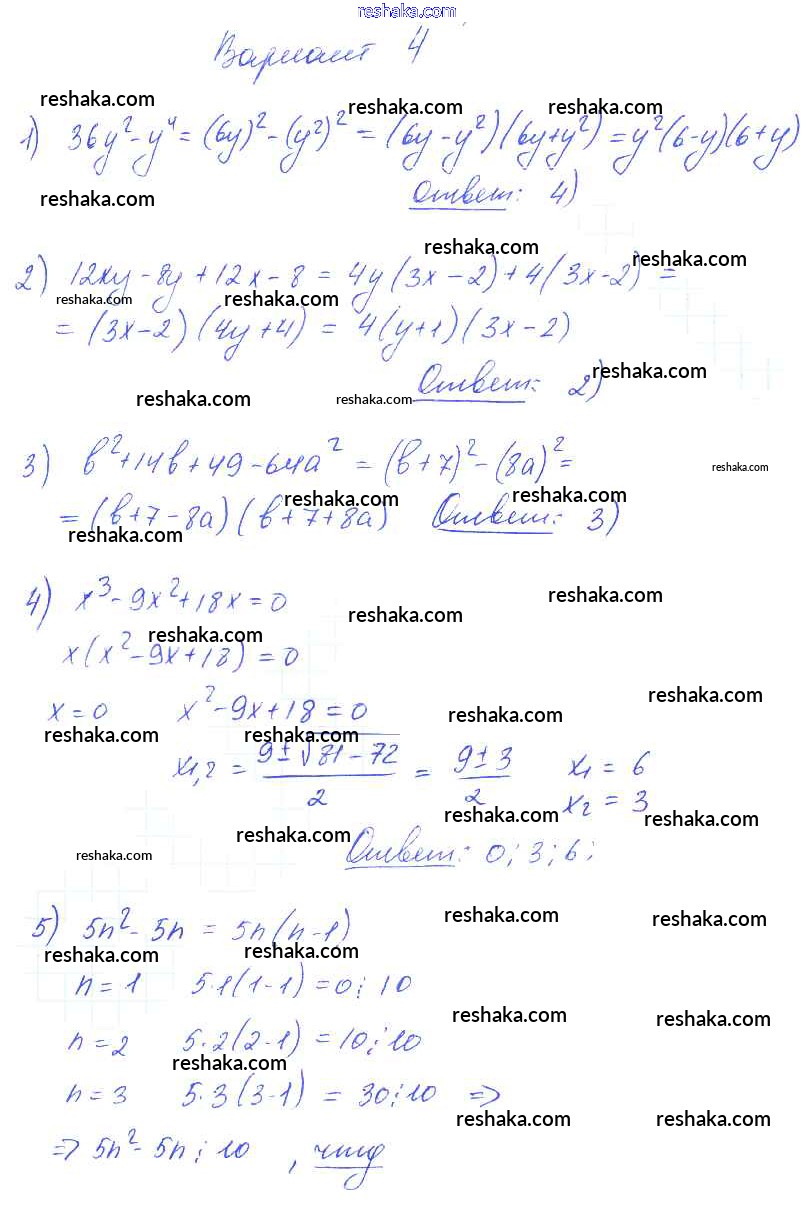 reshaka.com
Вариант 4
reshaka.com reshaka.com reshaka.com
1) 36y² - y⁴ = (6y)² - (y²)² = (6y - y²)(6y + y²) = y²(6-y)(6+y)
reshaka.com Ответ: 4)
reshaka.com reshaka.com
2) 12xy - 8y + 12x - 8 = 4y(3x - 2) + 4(3x - 2) =
reshaka.com reshaka.com
= (3x - 2)(4y + 4) = 4(y+1)(3x - 2)
reshaka.com
Ответ: 2)
reshaka.com reshaka.com
3) b² + 14b + 49 - 64a² = (b+7)² - (8a)² =
reshaka.com
reshaka.com reshaka.com
= (b+7-8a)(b+7+8a) Ответ: 3)
reshaka.com
4) x³ - 9x² + 18x = 0
reshaka.com reshaka.com
reshaka.com
x(x² - 9x + 18) = 0
reshaka.com
x = 0 x² - 9x + 18 = 0
reshaka.com reshaka.com
x₁,₂ = (9 ± √81 - 72)/2 = (9 ± 3)/2 x₁ = 6
x₂ = 3
reshaka.com reshaka.com
reshaka.com reshaka.com
Ответ: 0; 3; 6;
5) 5n² - 5n = 5n(n-1)
reshaka.com reshaka.com
reshaka.com reshaka.com
n = 1 5·1(1-1) = 0⋮10
reshaka.com reshaka.com
n = 2 5·2(2-1) = 10⋮10
reshaka.com
n = 3 5·3(3-1) = 30⋮10 =>
reshaka.com reshaka.com
=> 5n² - 5n⋮10, чтд